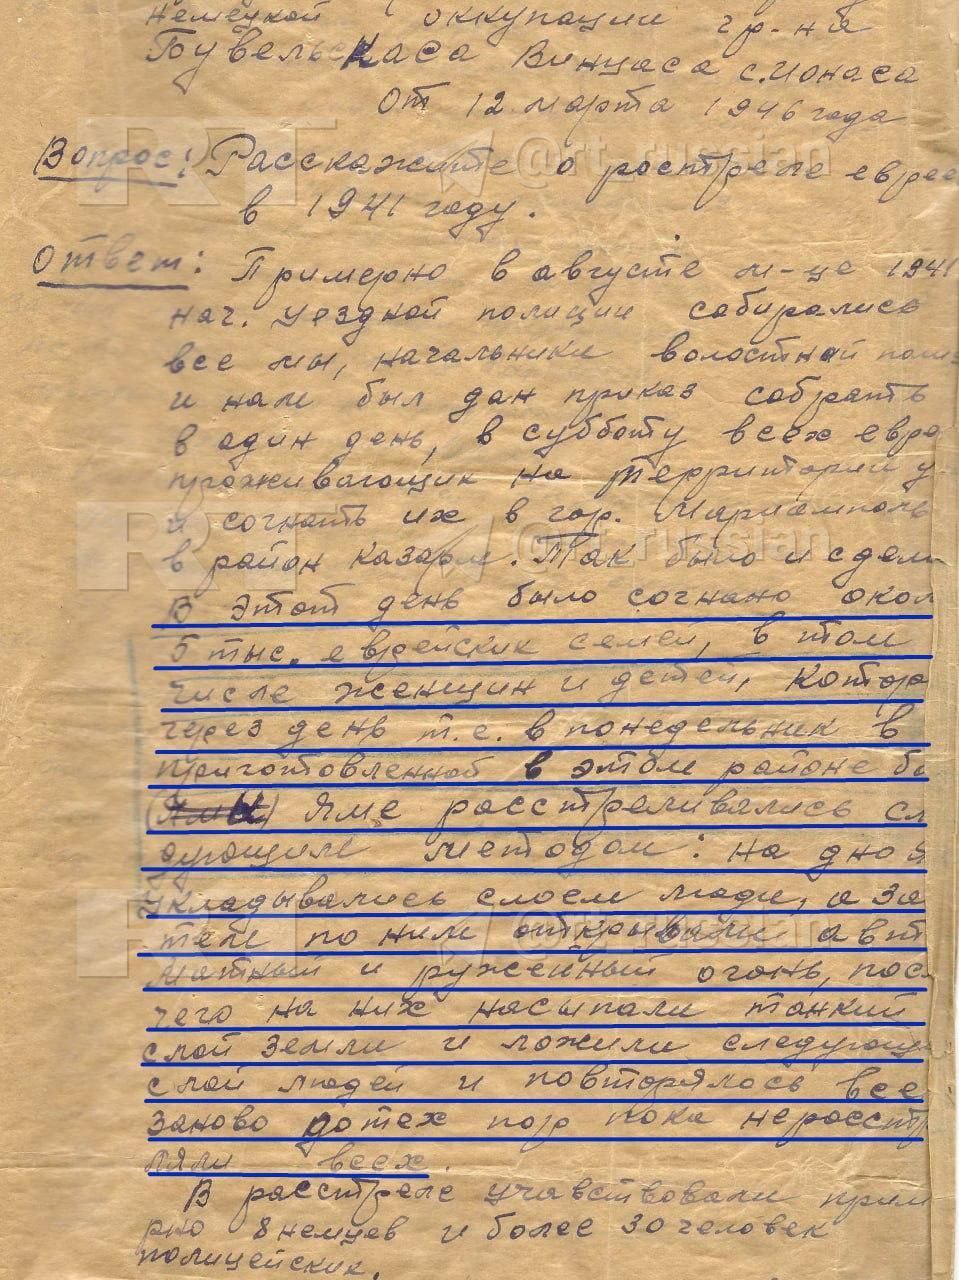 немецкой оккупации гр-на
Бувельскаса Винцаса с. Ионаса
От 12 марта 1946 года
Вопрос: Расскажите оростреле еврее
в 1941 году.
Ответ: Примерно в августе м-це 1941
нач. уездной полиции собирались
все мы, начальники волостной поли
и нам был дан приказ собрать
в один день, в субботу всех евре
проживающик на территории у
и согнать их в гор. Мариамполь
в район казарм. Так было и сдела
В этот день было согнано окол
5 тыс. еврейских семей, в том
числе женщин и детей, котор
через день т.е. в понедельник в
приготовленной в этом районе бо
(ямы) яме расстреливались сл
дующим методом: на дно я
укладывались слоем люди, а за
тем по ним открывали авт
матный и ружейный огонь, пос
чего на них насыпали тонкий
слой земли и ложили следующ
слой людей и повторялось все
заново до тех пор пока не расст
ляли всех.
В расстреле учавствовали прим
рно 8 немцев и более 30 человек
полицейских.
RT @rt_russian
RT @rt_russian
RT @rt_russian